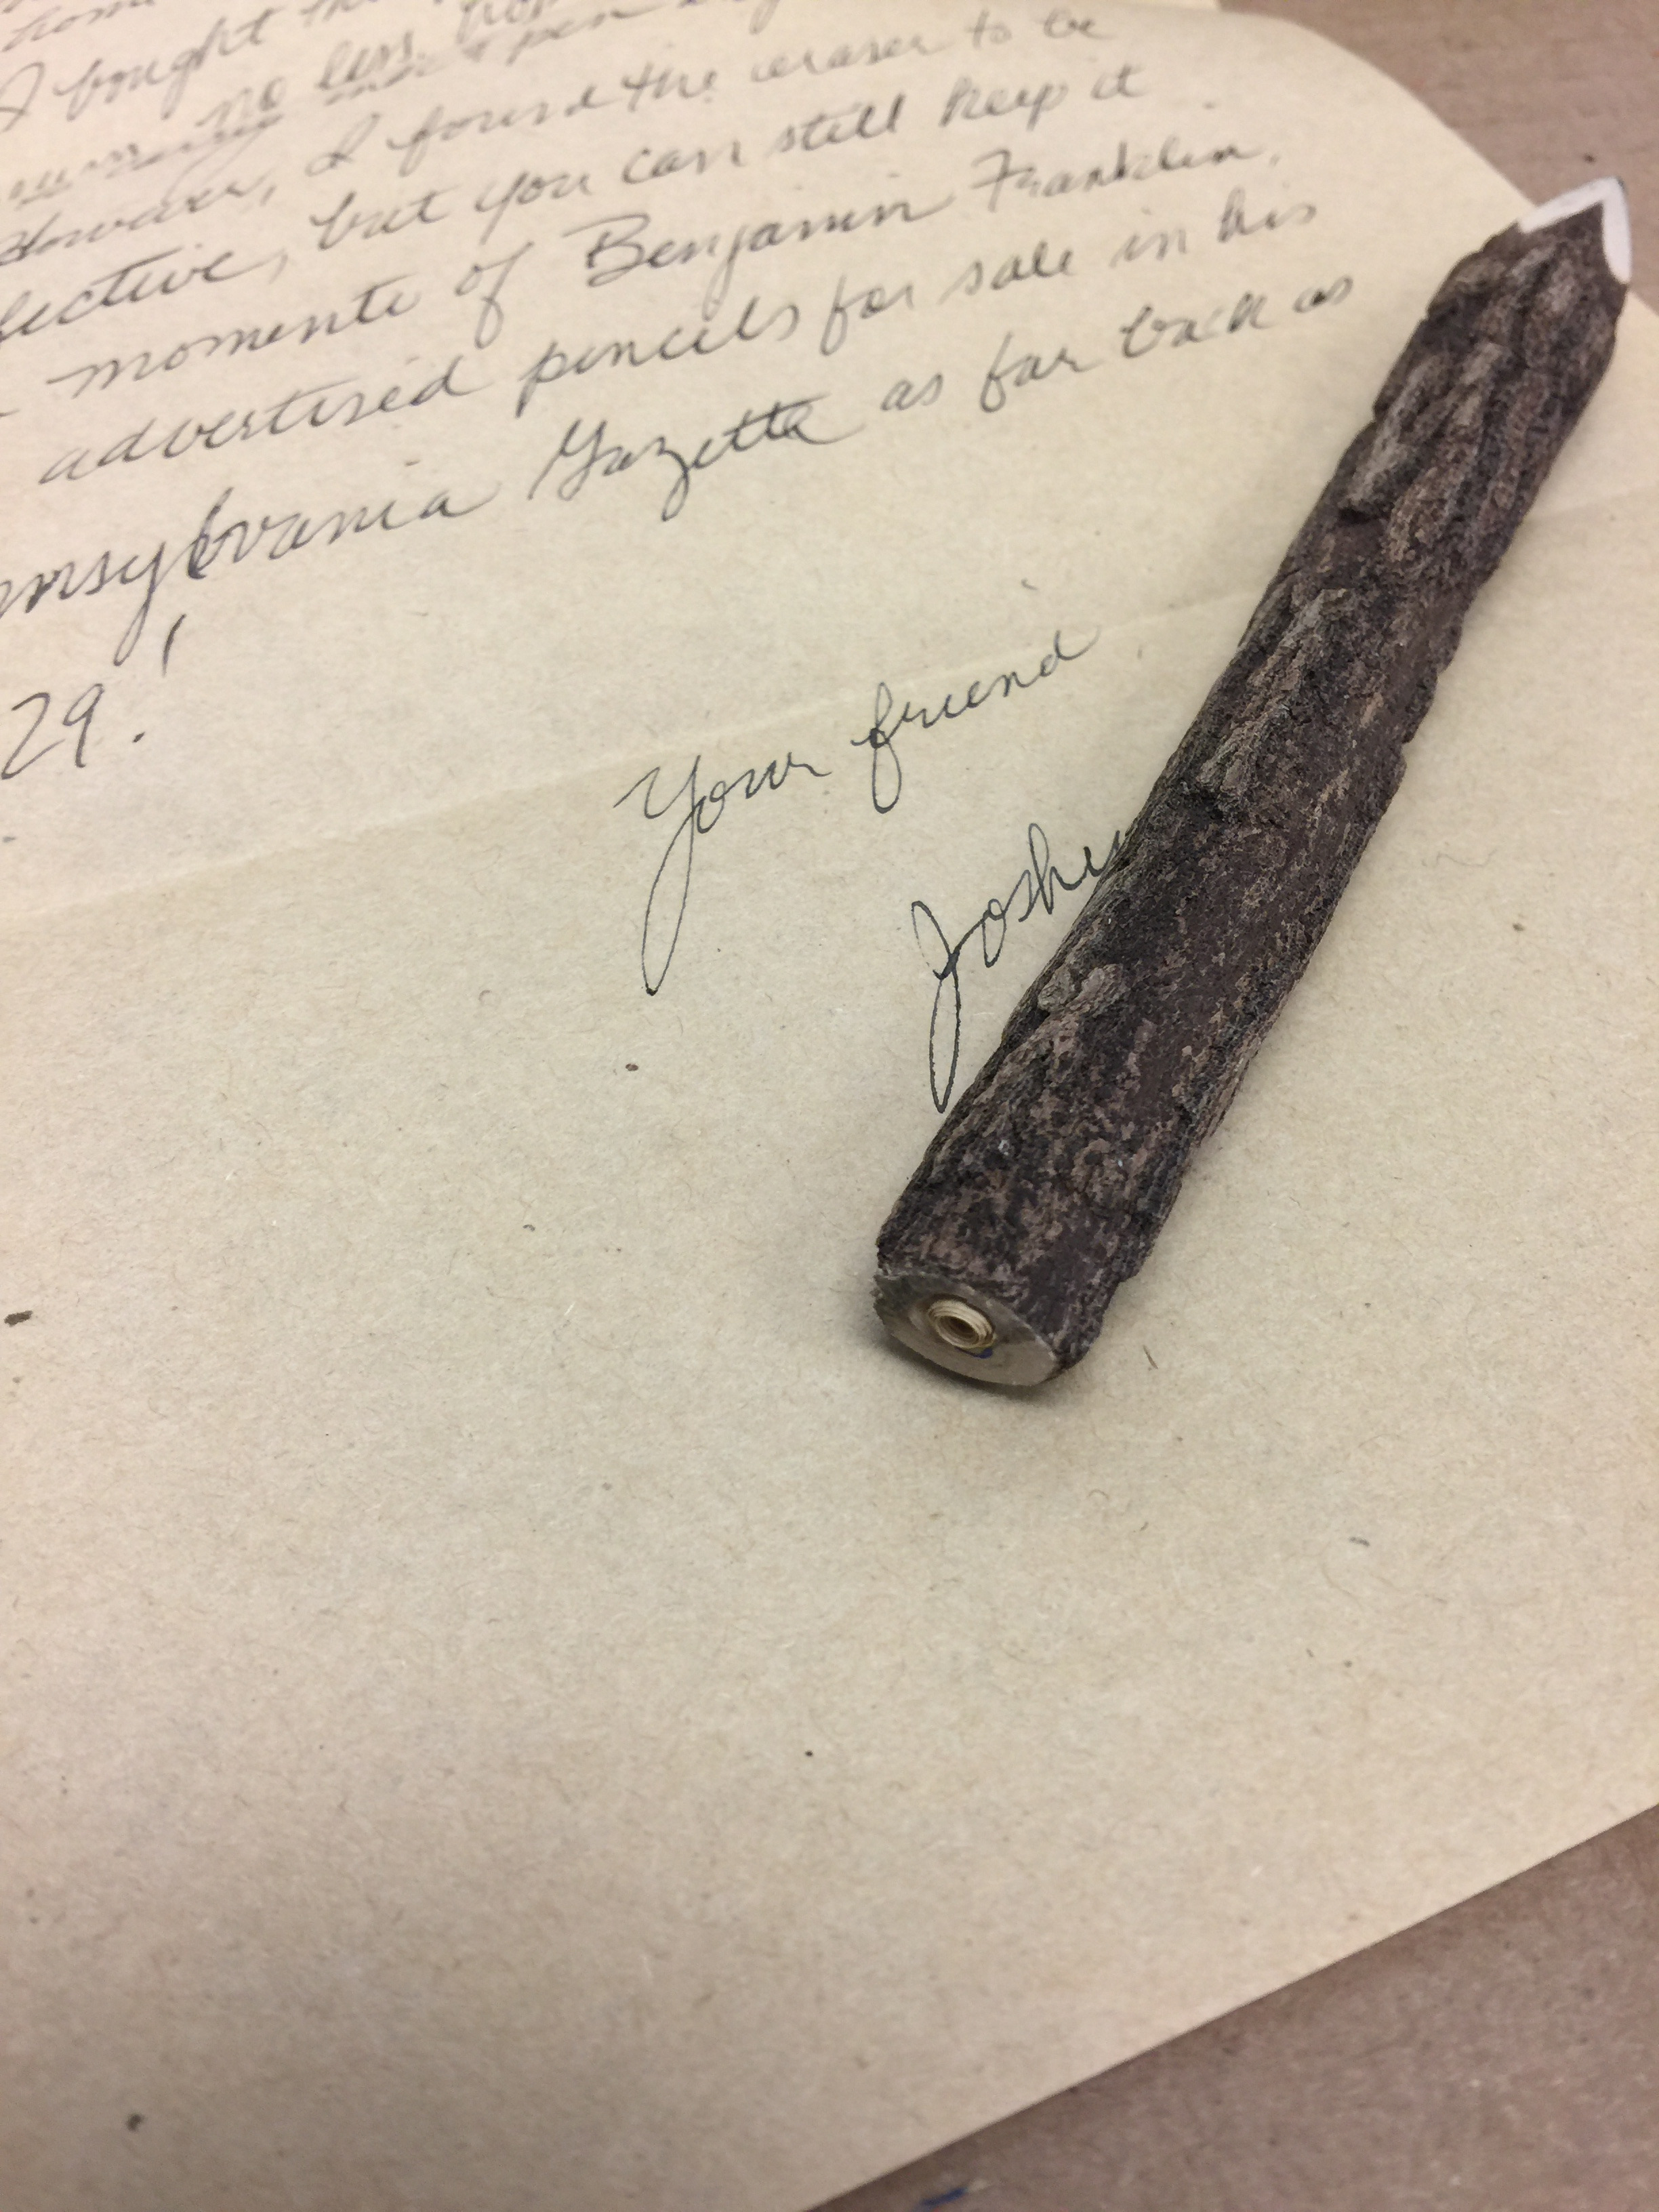 I bought the
no less from
pen
However, I found the eraser to be
fective, but you can still keep it
momento of Benjamin Franklin,
advertised pencils for sale in his
nnsylvania Gazette as far back as
29!
Your friend
Joshu